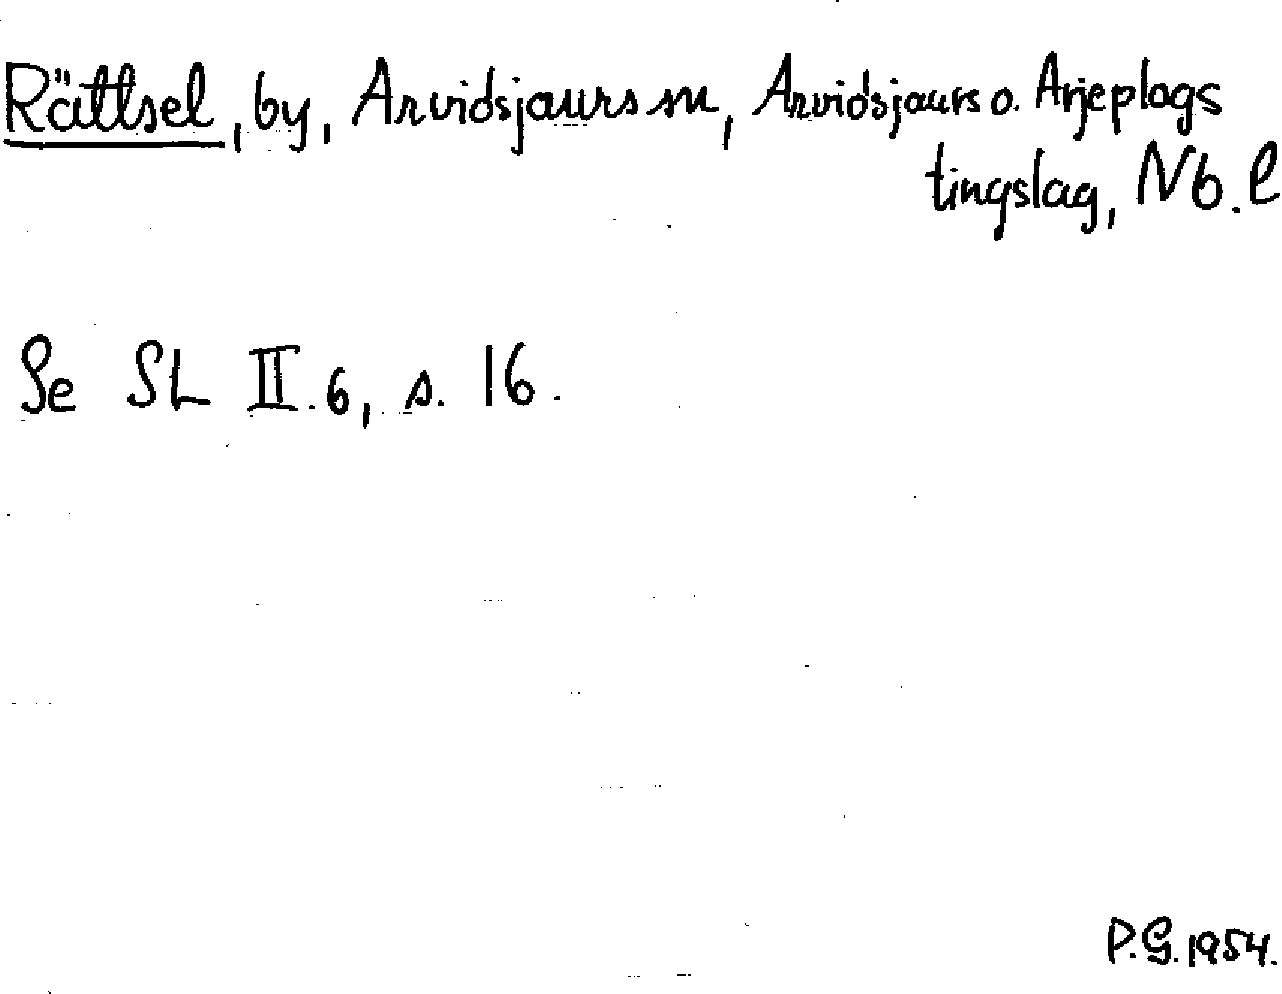 Rättsel, by, Arvidsjaurs sn, Arvidsjaurs o. Arjeplogs
tingslag, Nb. l
Se SL II.6, s. 16.
P.G. 1954.